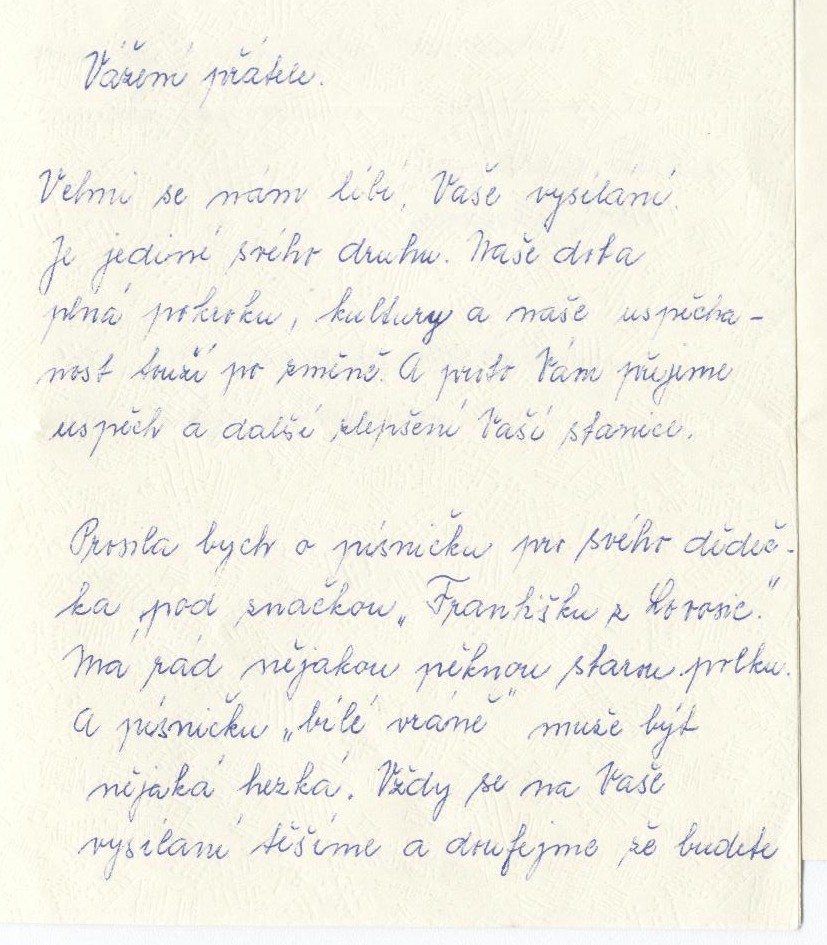 Vážení přátele.
Velmi se nám líbí, Vaše vysílání.
Je jediné svého druhu. Naše doba
plná pokroku, kultury a naše uspěcha-
nost touží po změně. A proto Vám přejeme
uspěch a další zlepšení Vaší stanice.
Prosila bych o písničku pro svého dědeč-
ka, pod značkou „Františku z Lovosic."
Má rád nějakou pěknou starou polku.
A písničku „bílé vráně" muže být
nějaká hezká. Vždy se na Vaše
vysílaní těšíme a doufejme že budete